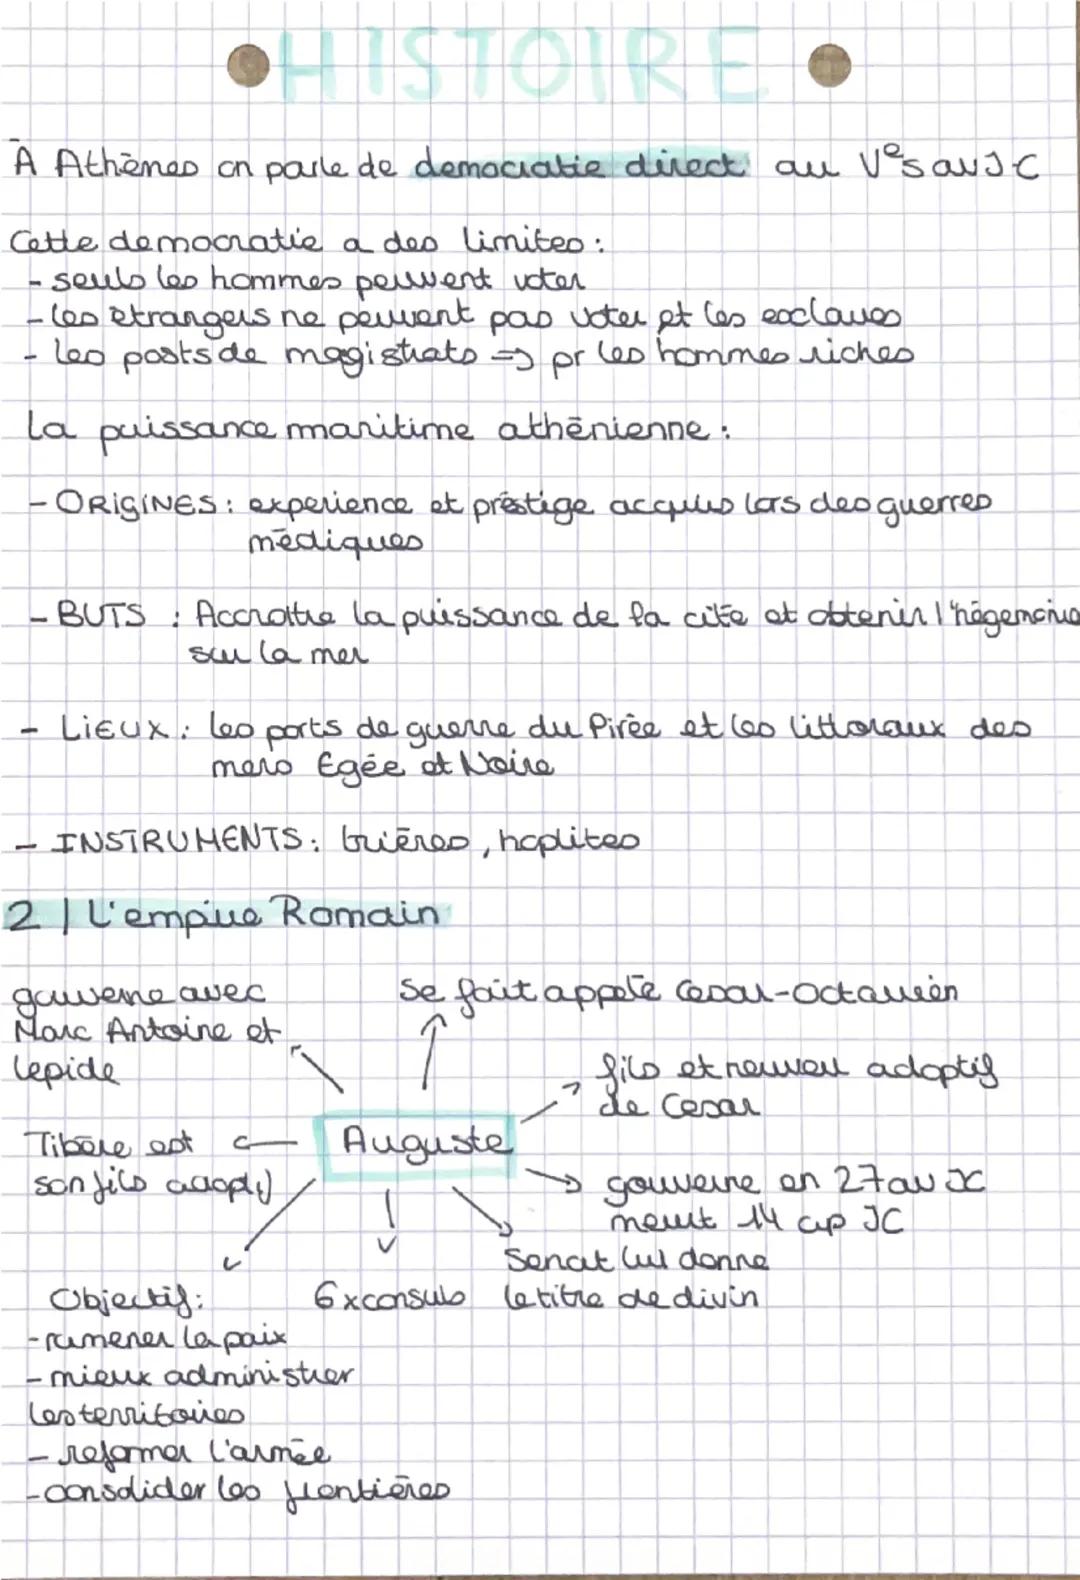 HISTOIRE
À Athènes on parle de democratie direct au Vᵉs av J-C
Cette democratie a des limites :
- seuls les hommes peuvent voter
- les etrangers ne peuvent pas voter et les esclaves
- les posts de magistrats => pr les hommes riches
La puissance maritime athénienne :
- ORIGINES : experience et préstige acquis lors des guerres
médiques
- BUTS : Accroître la puissance de la cité et obtenir l'hégémonie
sur la mer
- LIEUX : les ports de guerre du Pirée et les littoraux des
mers Egée et Noire
- INSTRUMENTS : trières, hoplites
2 | L'empire Romain
gouverne avec
Marc Antoine et
Lepide
se fait appelé Cesar-Octavien
fils et neuveu adoptif
de Cesar
Auguste
Tibère est
son fils adoptif
gouverne en 27 av JC
meurt 14 ap JC
Senat lui donne
le titre de divin
6x consuls
Objectif :
- ramener la paix
- mieux administrer
les territoires
- reformer l'armée
- consolider les frontières